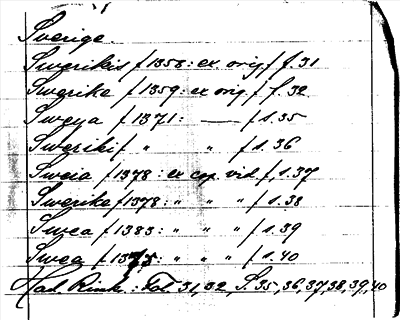 Sverige.
Swerikis f 1358: ex orig f f. 31
Swerike f 1359: ex orig f f. 32
Sweya f 1371: — f 1. 35
Swerikif " " f 1. 36
Sweia f 1378: ex cop. vid f 1. 37
Swerike f 1378: " " " f 1. 38
Swea f 1383: " " " f 1. 39
Swea f : " " f 1. 40
Had. : Fol 31, 32, S. 35, 36, 37, 38, 39, 40